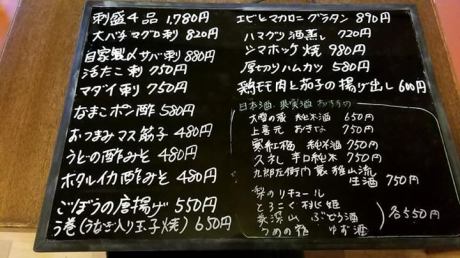 刺盛4品 1,780円
大バチマグロ刺 820円
自家製〆サバ刺 880円
活たこ刺 750円
マダイ刺 750円
なまこポン酢 580円
おつまみマス筋子 480円
うどの酢みそ 480円
ホタルイカ酢みそ 480円
ごぼうの唐揚げ 550円
う巻(うなぎ入り玉子焼) 650円
エビとマカロニグラタン 890円
ハマグリ酒蒸し 720円
シマホッケ焼 980円
厚切りハムカツ 580円
鶏モモ肉と茄子の揚げ出し 600円
日本酒、果実酒 おすすめ
大雪の蔵 純米酒 650円
上喜元 おきな 750円
寒紅梅 純米酒 750円
久礼 辛口純米 750円
九郎左衛門 裏 雅山流
生酒 750円
梨のリキュール
とろこく桃姫
ぶどう酒
うめの宿 ゆず酒
各550円